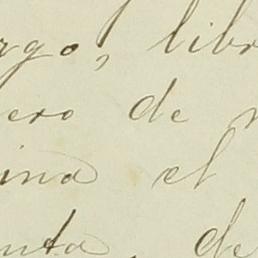 rgo, libr
ero de
ina el
nta, de